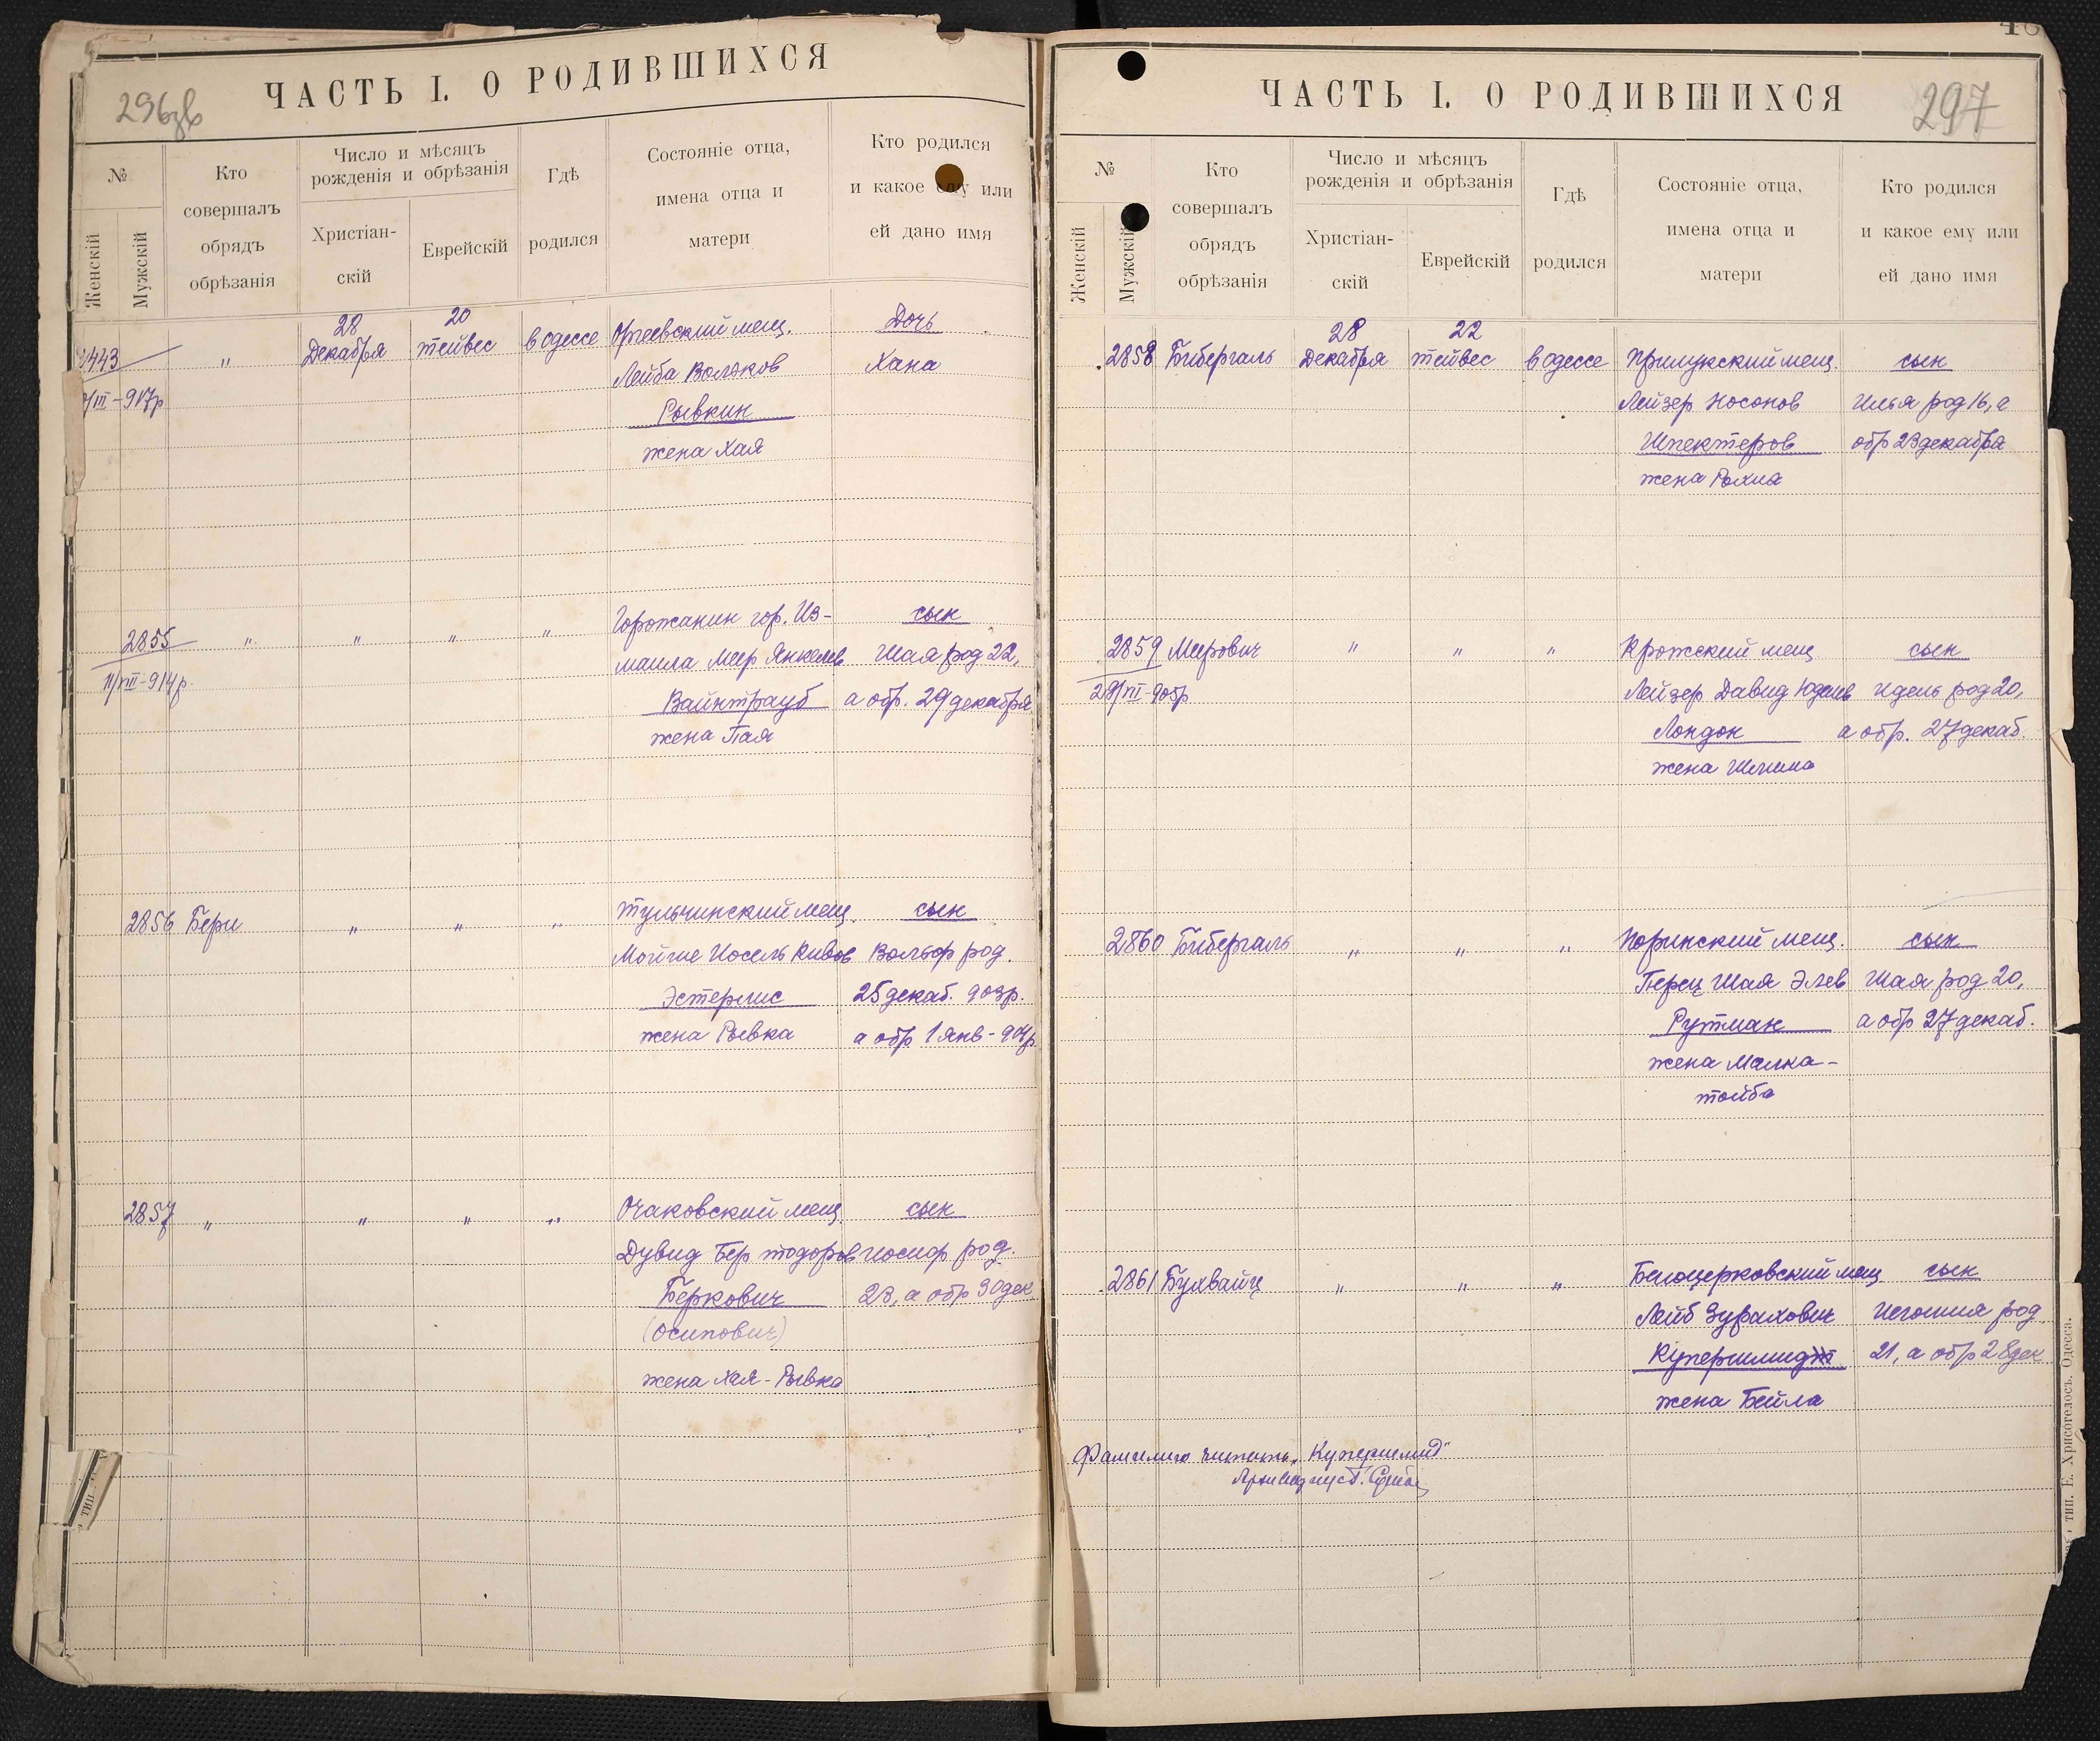 296зв
ЧАСТЬ I. О РОДИВШИХСЯ
№
Женскій
Мужскій
Кто
совершалъ
обрядъ
обрѣзанія
Число и мѣсяцъ
рожденія и обрѣзанія
Христіан-
скій
Еврейскій
Гдѣ
родился
Состояніе отца,
имена отца и
матери
Кто родился
и какое ему или
ей дано имя
443 " 28 Декабря 20 тейвес в Одессе Оргеевский мещ. Дочь
/III-917р Лейба Вольков Хана
Рывкин
жена Хая
2855 " " " " Горожанин гор. Из- сын
маила Меер Янкелев Шая род 22,
11/VII-914р. Вайнтрауб а обр. 29 декабря
жена Пая
2856 Бери " " " Тульчинский мещ. сын
Мойше Иосель Кивов Вольф род.
Эстерлис 25 декаб. 903р.
жена Рывка а обр 1 Янв-904р
2857 " " " " Очаковский мещ. сын
Дувид Бер Тодоров Иосиф род.
Беркович 23, а обр 30 дек
(Осипович)
жена Хая-Рывка
297
ЧАСТЬ I. О РОДИВШИХСЯ
№
Женскій
Мужскій
Кто
совершалъ
обрядъ
обрѣзанія
Число и мѣсяцъ
рожденія и обрѣзанія
Христіан-
скій
Еврейскій
Гдѣ
родился
Состояніе отца,
имена отца и
матери
Кто родился
и какое ему или
ей дано имя
2858 Бибергаль 28 Декабря 22 тейвес в Одессе Прилукский мещ. сын
Лейзер Носонов Илья род 16, а
Шпектеров обр 23 декабря
жена Рохля
2859 Меерович " " " Крожский мещ сын
Лейзер Давид Юделев Идель род 20,
Лондон а обр. 27 декаб.
жена Шейна
2860 Бибергаль " " " Норинский мещ. сын
Перец Шая Элев Шая род 20,
Рутман а обр 27 декаб.
жена Малка-
тойба
2861 Бухвайц " " " Белоцерковский мещ сын
Лейб Зурахович Иегошия род
Купершмид 21, а обр 28 дек
жена Бейла
Фамилию читать "Купершмид"
тип. Е. Хрисогелосъ. Одесса.